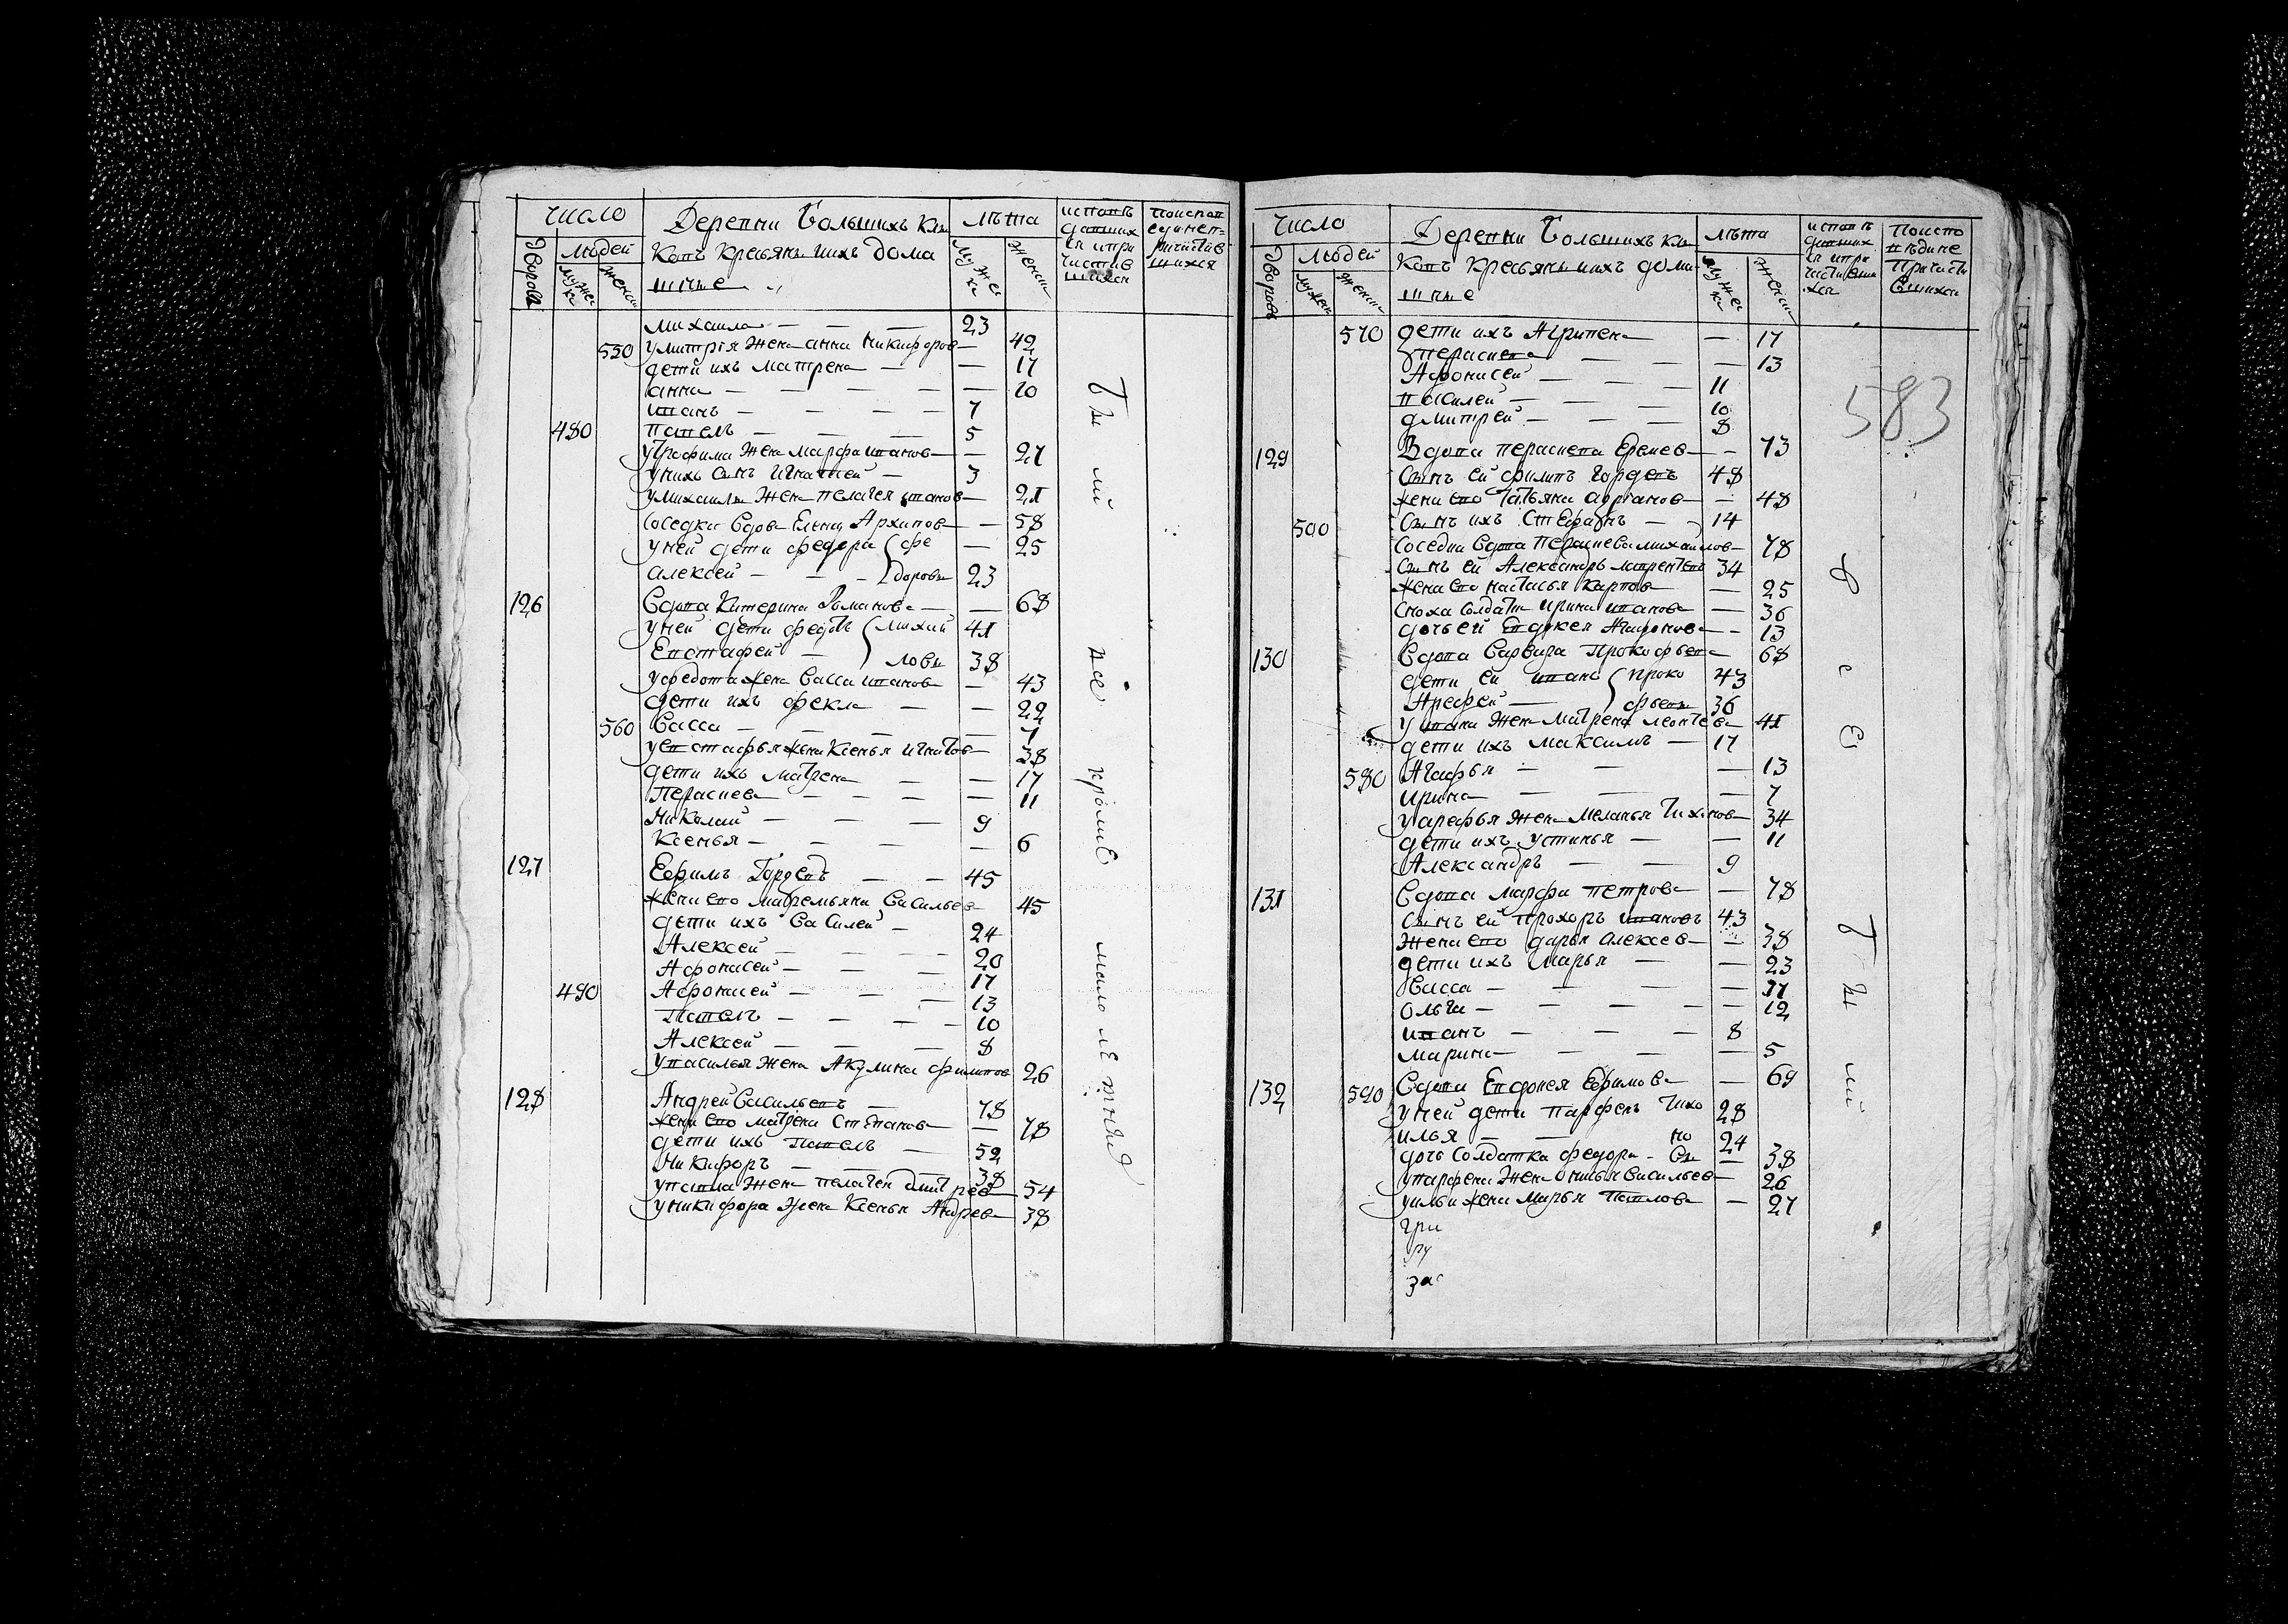 число
Деревни Большихъ Клю
лѣта
исповѣ
давших
ся и при
частив
шихся
Дворовъ
людей
мужес
женск
ковъ крестьянъ и ихъ дома
шние
мужес
ка
женск
михаила — — — 23
550 у митрія жена анна никифоров — 42
дети ихъ матрена — — 17
анна — — — — — 10
иванъ — — — — 7
480 павелъ — — — 5
у трафима жена марфа иванов — 27
у нихъ сынъ игнатей — 3
у михаилы жена пелагея иванов — 21
соседки вдова Елена Архипов — — 58
у ней дети федора (фе — 25
алексей — — — доровы 23
126 вдова катерина Романова — — 68
у ней дети федотъ (михай 41
Евстафей — ловы 38
у федота жена васса иванов — 43
дети ихъ фекла — — 22
560 васса — — — — — 7
у евстафья жена Ксенья игнатов — 38
дети ихъ матрена — — 17
Перасиева — — — — 11
Николай — — — 9
Ксенья — — — — — 6
127 Ефимъ Гордеев — — 45
жена ево матремьяна васильев 45
дети ихъ василей — 24
Алексей — — — 20
Афонасей — — — 17
490 Афонасей — — — 13
Павелъ — — — — 10
Алексей — — — — 8
у василья жена Акулина филипов 26
128 Андрей васильевъ — 78
жена ево матрена Степанов — — 78
дети ихъ Павелъ — 52
Никифоръ — — 38
у павла жена пелагея дмитрев — 54
у никифора жена Ксенья Андрев — 38
бы
ли
все
кроме
малолетния
число
Деревни Большихъ Клю
лѣта
исповѣ
давших
ся и при
частивши
хся
Дворовъ
людей
мужеск
женск
ковъ крестьянъ и ихъ дома
шние
мужес
ка
женск
583
570 дети ихъ Агрипена — 17
перасиева — — — 13
Афонасей — — — 11
василей — — — 10
дмитрей — — — 8
129 Вдова перасиева Еремев — — 73
сынъ ей филипъ гордеевъ 48
жена ево Татьяна афанов — — 48
500 сынъ ихъ Стефанъ — 14
соседка вдова Перасиева михайлов — 78
сынъ ей Александръ лаврентьевъ 34
жена ево настасья карпова — 25
сноха солдатка ирина иванова — 36
дочь ей Евдокея Агафонов — — 13
130 вдова варвара Прокофьева 68
дети ей иванъ (проко 43
Арефей — фьевы 36
у ивана жена матрена леонтева — 41
дети ихъ максимъ — 17
580 Агафья — — — 13
ирина — — — 7
у арефья жена меланья тихонов — 34
дети ихъ устинья — — 11
Александръ — — 9
131 вдова марфа петрова — 78
сынъ ей прохоръ ивановъ 43
жена ево дарья алексев — — 38
дети ихъ марья — — 23
васса — — — — 17
ольга — — — — 12
иванъ — — — 8
марина — — — 5
132 590 вдова Евдокея Ефимова — 69
у ней дети парфенъ тихо 28
илья — — но 24
дочь солдатка федора — вы — 38
у парфена жена онисья васильев — 26
у ильи жена марья Павлова — 27
гри
ру
за
в
с
е
бы
ли